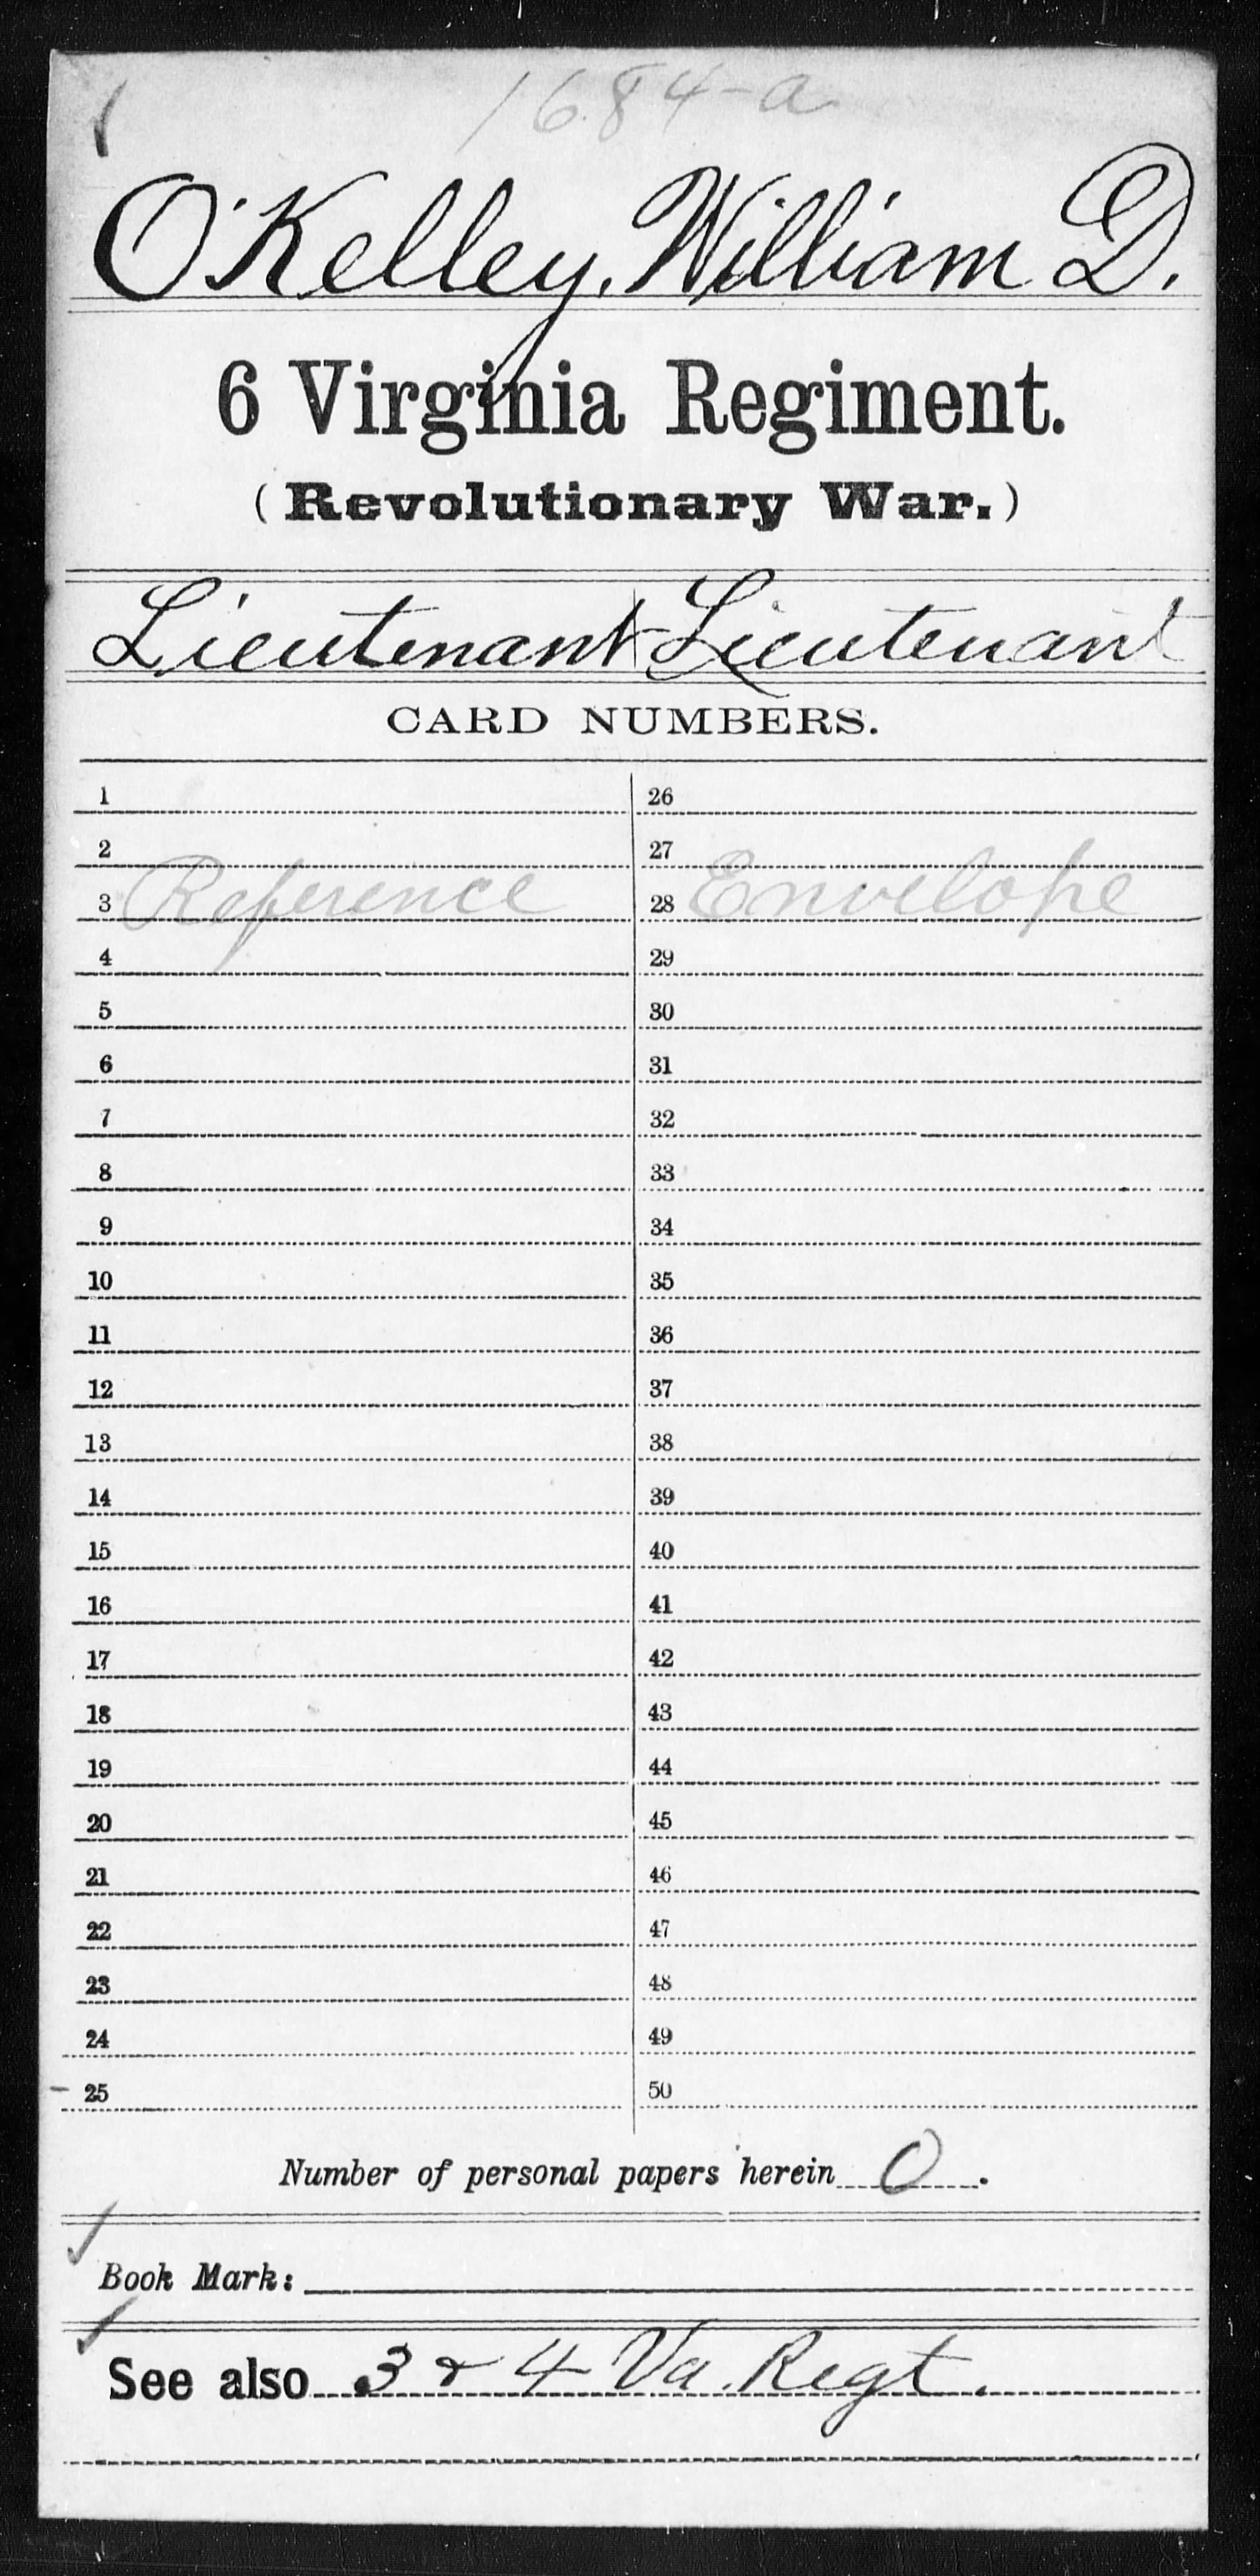 1684-a
O'Kelley, William D.
6 Virginia Regiment.
(Revolutionary War.)
Lieutenant Lieutenant
CARD NUMBERS.
1 26
2 27
3 Reference 28 Envelope
4 29
5 30
6 31
7 32
8 33
9 34
10 35
11 36
12 37
13 38
14 39
15 40
16 41
17 42
18 43
19 44
20 45
21 46
22 47
23 48
24 49
25 50
Number of personal papers herein 0.
Book Mark:
See also 3 & 4 Va. Regt.